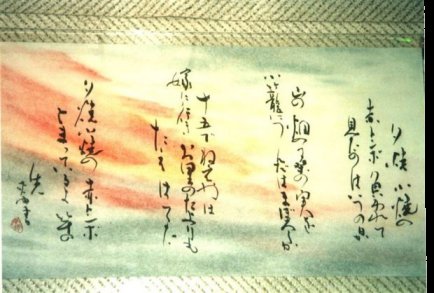 夕焼小焼の
赤トンボ負われて
見たのはいつの日か
山の畑の桑の実を
小籠につんだはまぼろしか
十五でねえやは
嫁に行きお里のたよりも
たえはてた
夕焼小焼の赤トンボ
とまっているよ竿の
先